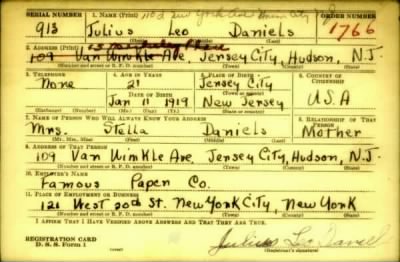 SERIAL NUMBER 1. NAME (Print) ORDER NUMBER
913 Julius Leo Daniels 1766
(First) (Middle) (Last)
2. ADDRESS (Print)
109 Van Winkle Ave. Jersey City, Hudson, N.J.
(Number and street or R. F. D. number) (Town) (County) (State)
3. TELEPHONE 4. AGE IN YEARS 5. PLACE OF BIRTH 6. COUNTRY OF CITIZENSHIP
None 21 Jersey City
DATE OF BIRTH
Jan 11 1919 New Jersey U.S.A
(Exchange) (Number) (Mo.) (Day) (Yr.) (State or country)
7. NAME OF PERSON WHO WILL ALWAYS KNOW YOUR ADDRESS 8. RELATIONSHIP OF THAT PERSON
Mrs. Stella Daniels Mother
(Mr., Mrs., Miss) (First) (Middle) (Last)
9. ADDRESS OF THAT PERSON
109 Van Winkle Ave, Jersey City, Hudson, N.J.
(Number and street or R. F. D. number) (Town) (County) (State)
10. EMPLOYER'S NAME
Famous Paper Co.
11. PLACE OF EMPLOYMENT OR BUSINESS
121 West 20th St. New York City, New York
(Number and street or R. F. D. number) (Town) (County) (State)
I AFFIRM THAT I HAVE VERIFIED ABOVE ANSWERS AND THAT THEY ARE TRUE.
REGISTRATION CARD
D. S. S. Form 1 Julius Leo Daniels
(Registrant's signature)